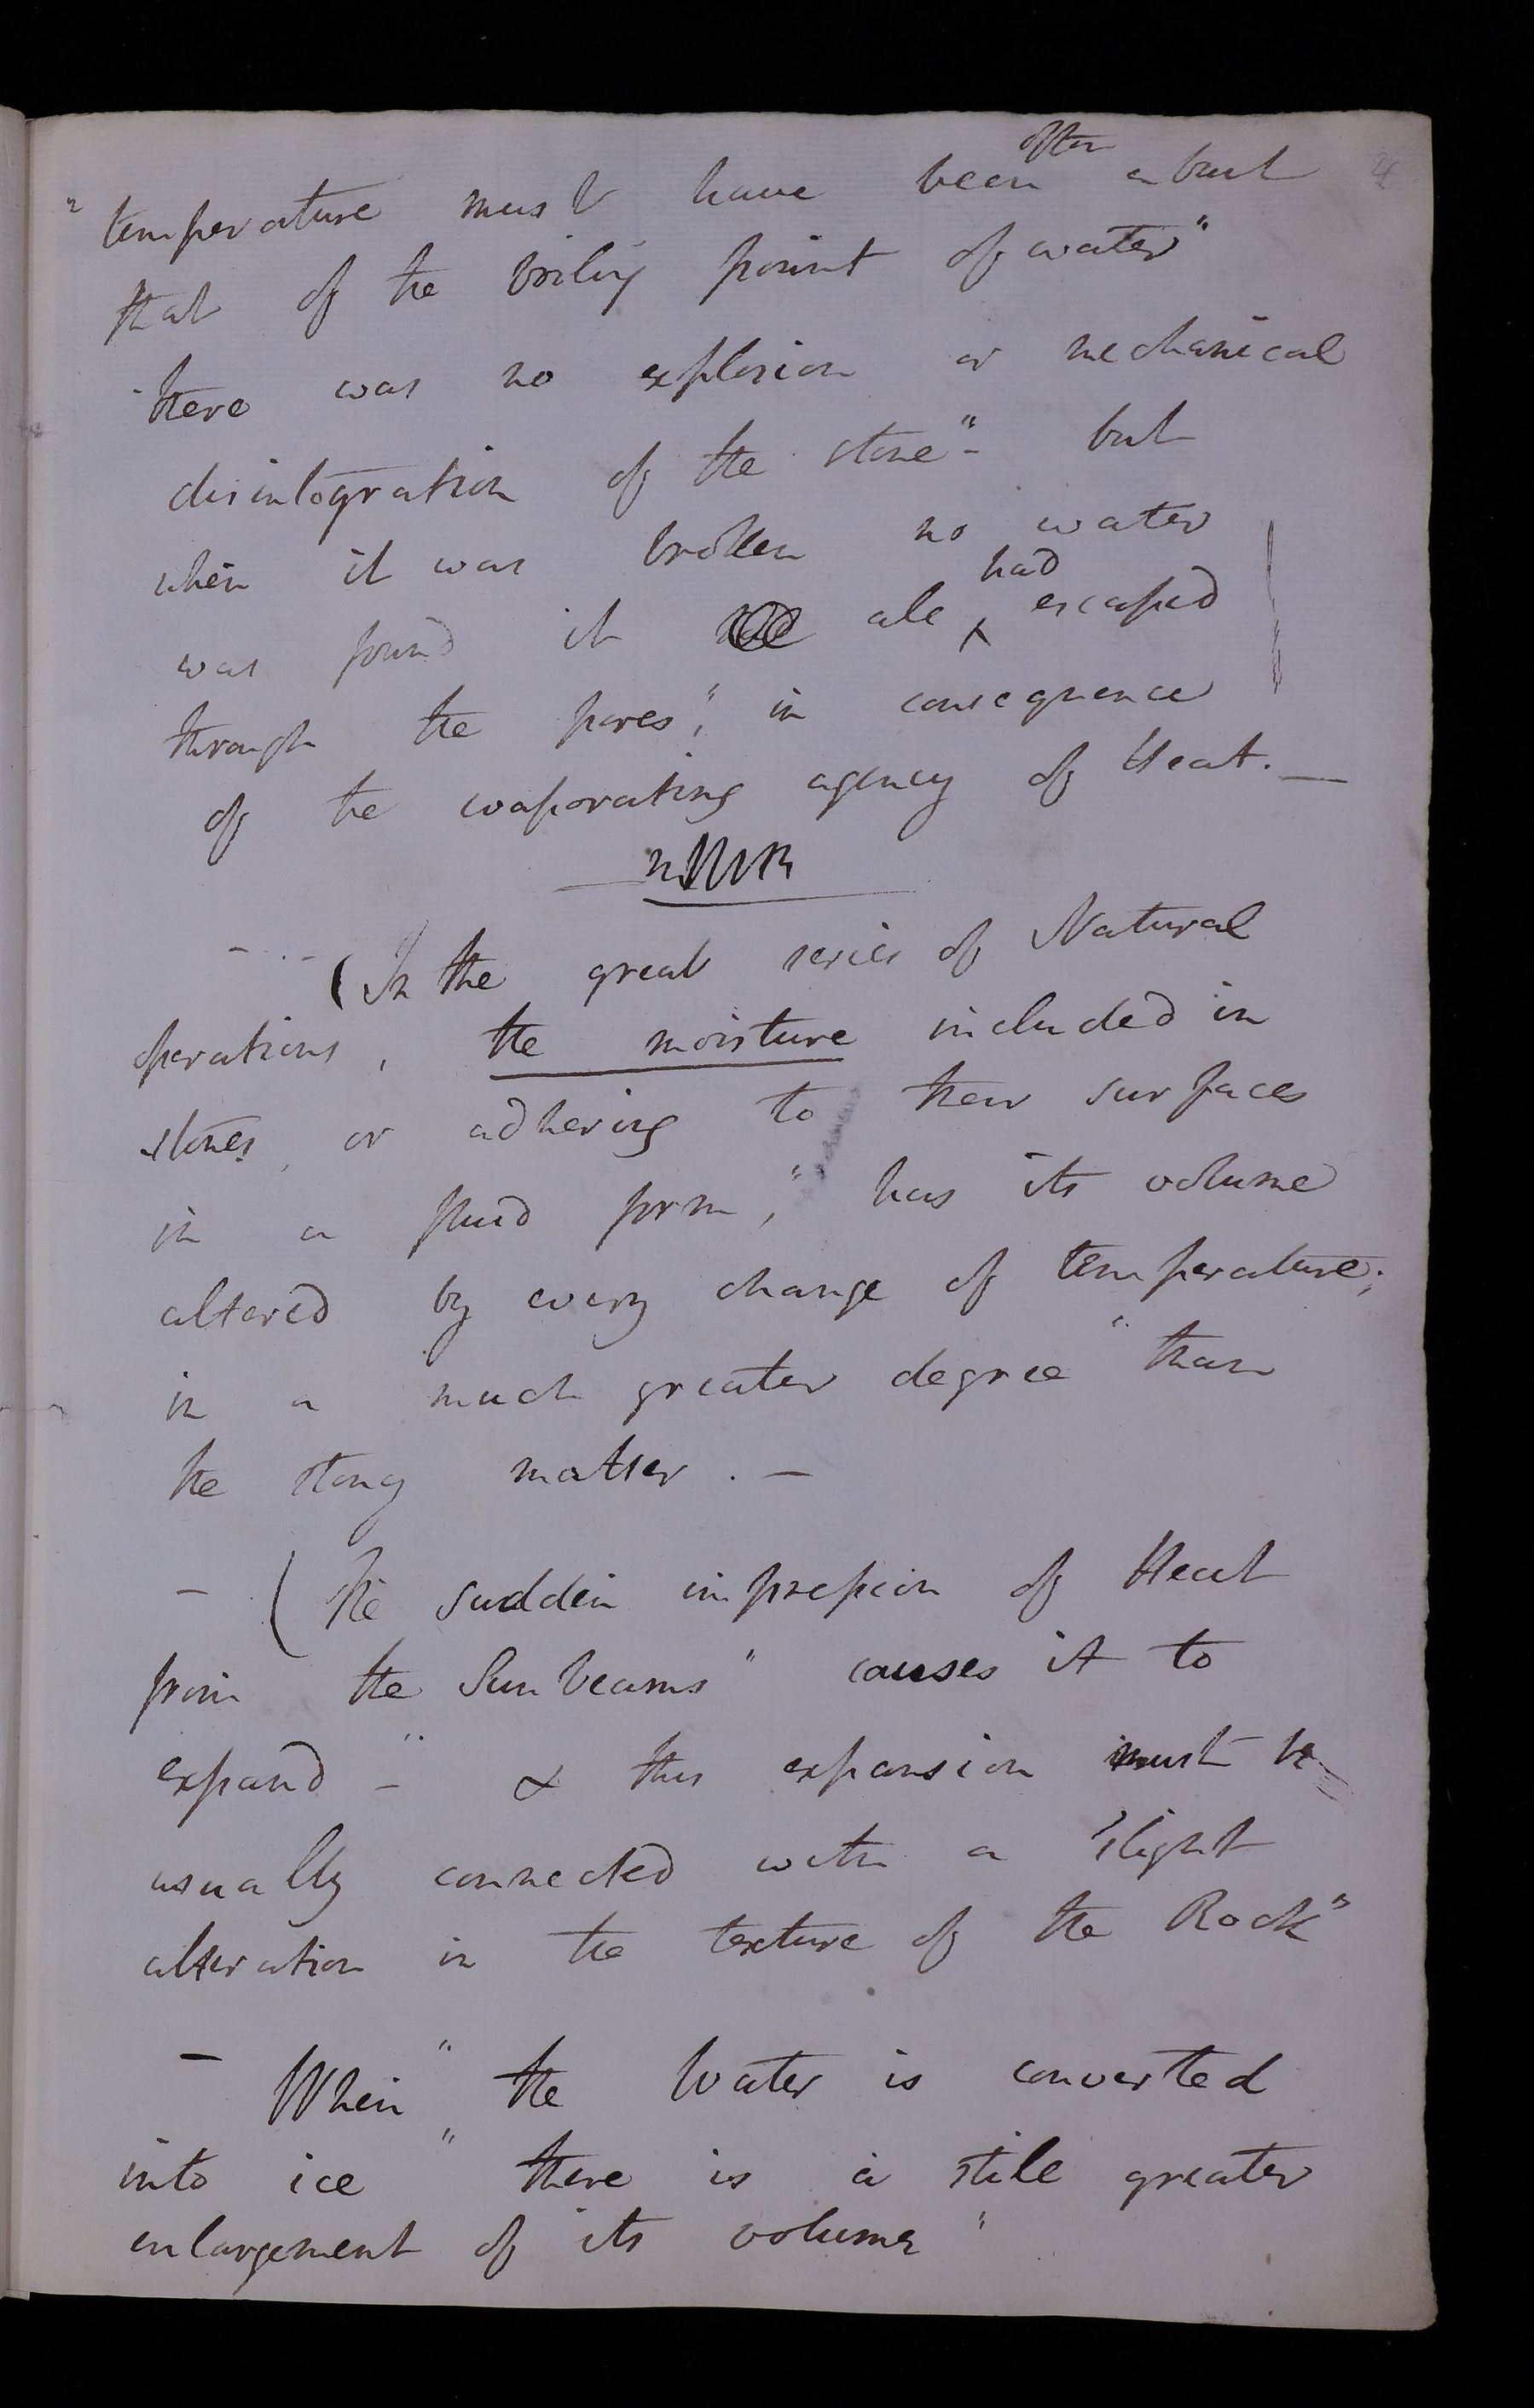 often
" temperature must have been about
that of the boiling point of water"
there was no explosion or mechanical
disintegration of the stone" - but
when it was broken no water
had
was found it all escaped
through the pores", in consequence
of the evaporating agency of Heat. —
- - - (In the great series of Natural
operations, the moisture included in
stones, or adhering to their surfaces
in a fluid form," has its volume
altered by every change of temperature;
in a much greater degree " than
the stony matter. —
— (the sudden impression of Heat
from the Sun beams " causes it to
expand " - & this expansion must be
usually connected with a slight
alteration in the texture of the Rock"
— When " the Water is converted
into ice " there is a still greater
enlargement of its volume "